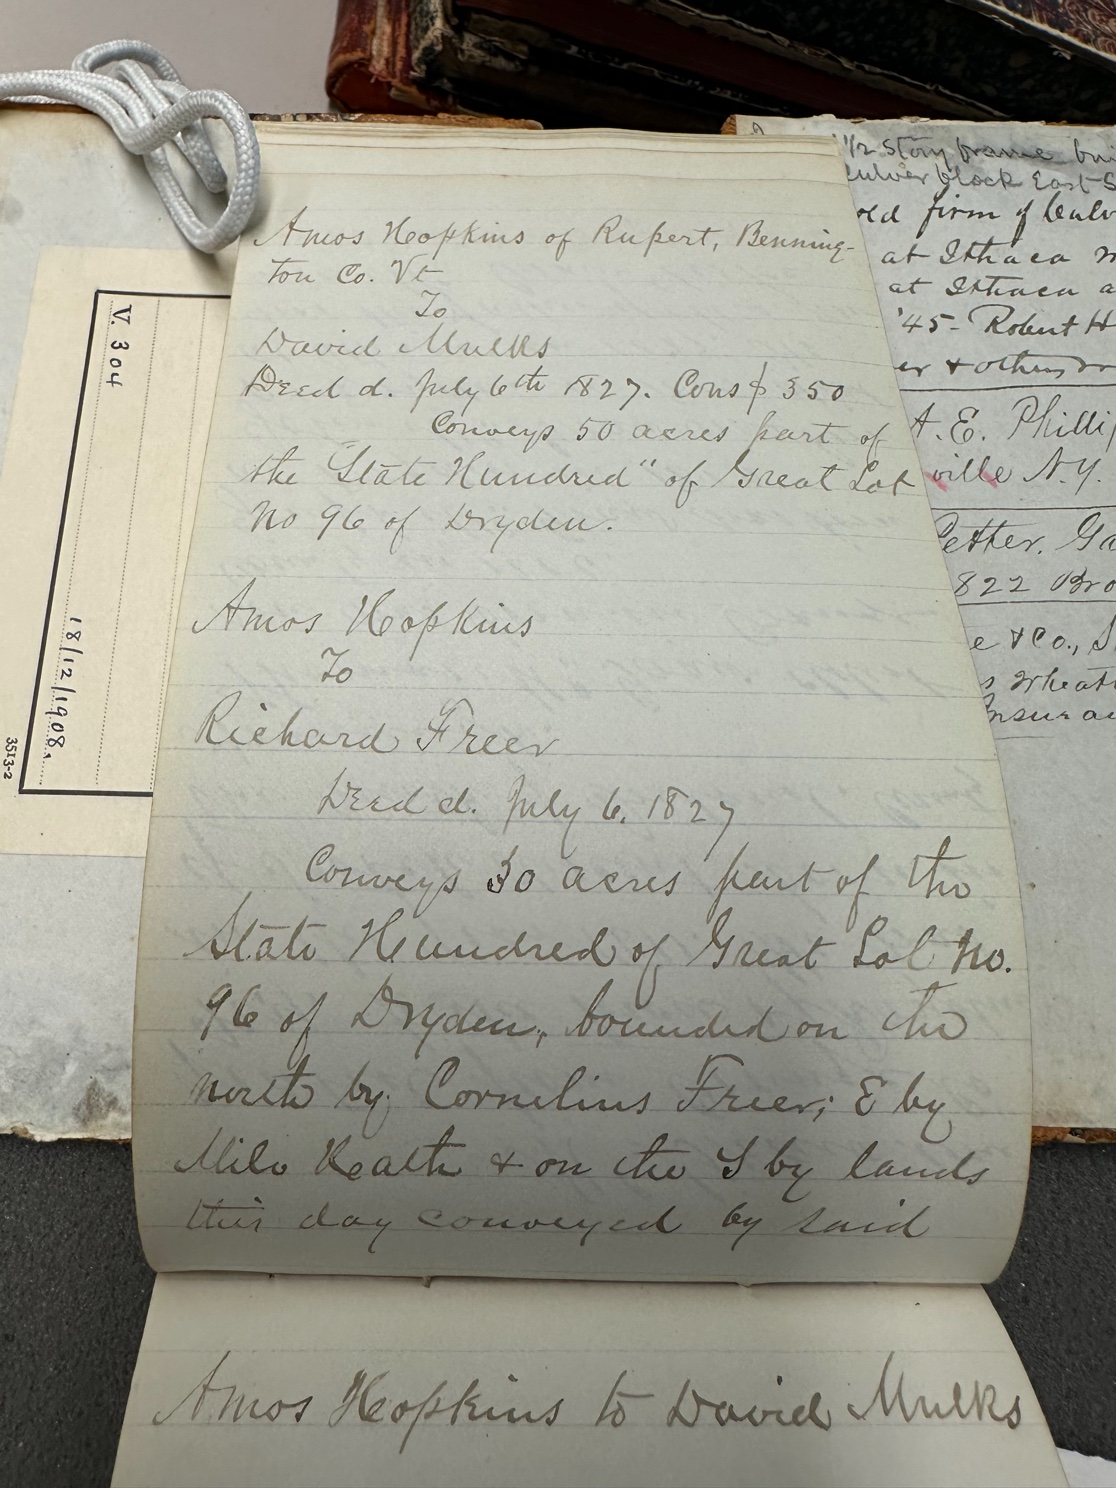 V. 304
18/12/1908.
3513-2
Amos Hopkins of Rupert, Benning-
ton Co. Vt
To
David Mulks
Deed d. July 6th 1827. Cons $350
Conveys 50 acres part of
the "State Hundred" of Great Lot
No 96 of Dryden.
Amos Hopkins
To
Richard Freer
Deed d. July 6, 1827
Conveys 30 acres part of the
State Hundred of Great Lot No.
96 of Dryden, bounded on the
north by Cornelius Freer; E by
Milo Heath & on the S by lands
this day conveyed by said
Amos Hopkins to David Mulks
1/2 story frame
block East
old firm of
at Ithaca
at Ithaca
'45- Robert H
& others
A. E.
ville N.Y.
822
& Co.,